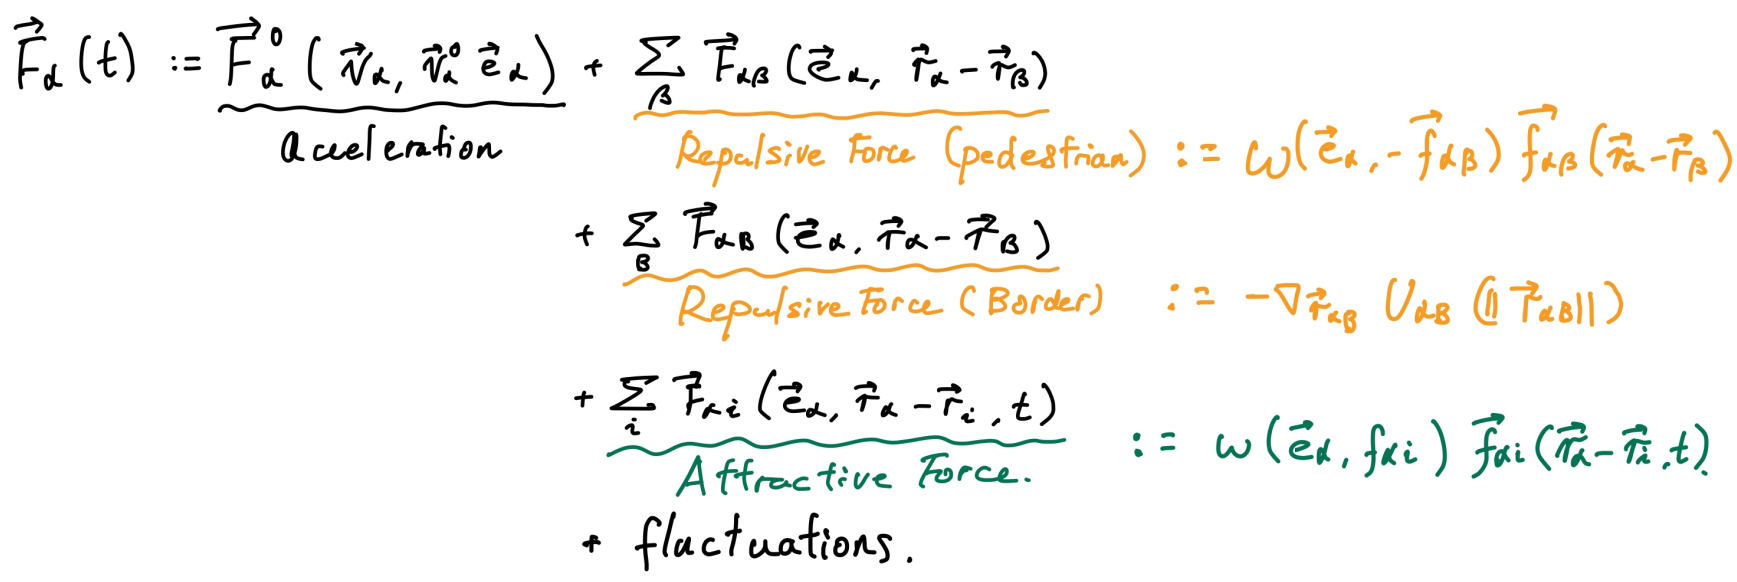 $\vec{F}_\alpha(t) := \vec{F}_\alpha^0(\vec{v}_\alpha, \vec{v}_\alpha^0 \vec{e}_\alpha) + \sum_\beta \vec{F}_{\alpha\beta}(\vec{e}_\alpha, \vec{r}_\alpha - \vec{r}_\beta)$
Acceleration
Repulsive Force (pedestrian) $:= \omega(\vec{e}_\alpha, -\vec{f}_{\alpha\beta}) \vec{f}_{\alpha\beta}(\vec{r}_\alpha - \vec{r}_\beta)$
$+ \sum_B \vec{F}_{\alpha B}(\vec{e}_\alpha, \vec{r}_\alpha - \vec{r}_B)$
Repulsive Force (Border) $:= -\nabla_{\vec{r}_{\alpha B}} U_{\alpha B}(\|\vec{r}_{\alpha B}\|)$
$+ \sum_i \vec{F}_{\alpha i}(\vec{e}_\alpha, \vec{r}_\alpha - \vec{r}_i, t)$
Attractive Force. $:= \omega(\vec{e}_\alpha, f_{\alpha i}) \vec{f}_{\alpha i}(\vec{r}_\alpha - \vec{r}_i, t).$
+ fluctuations.